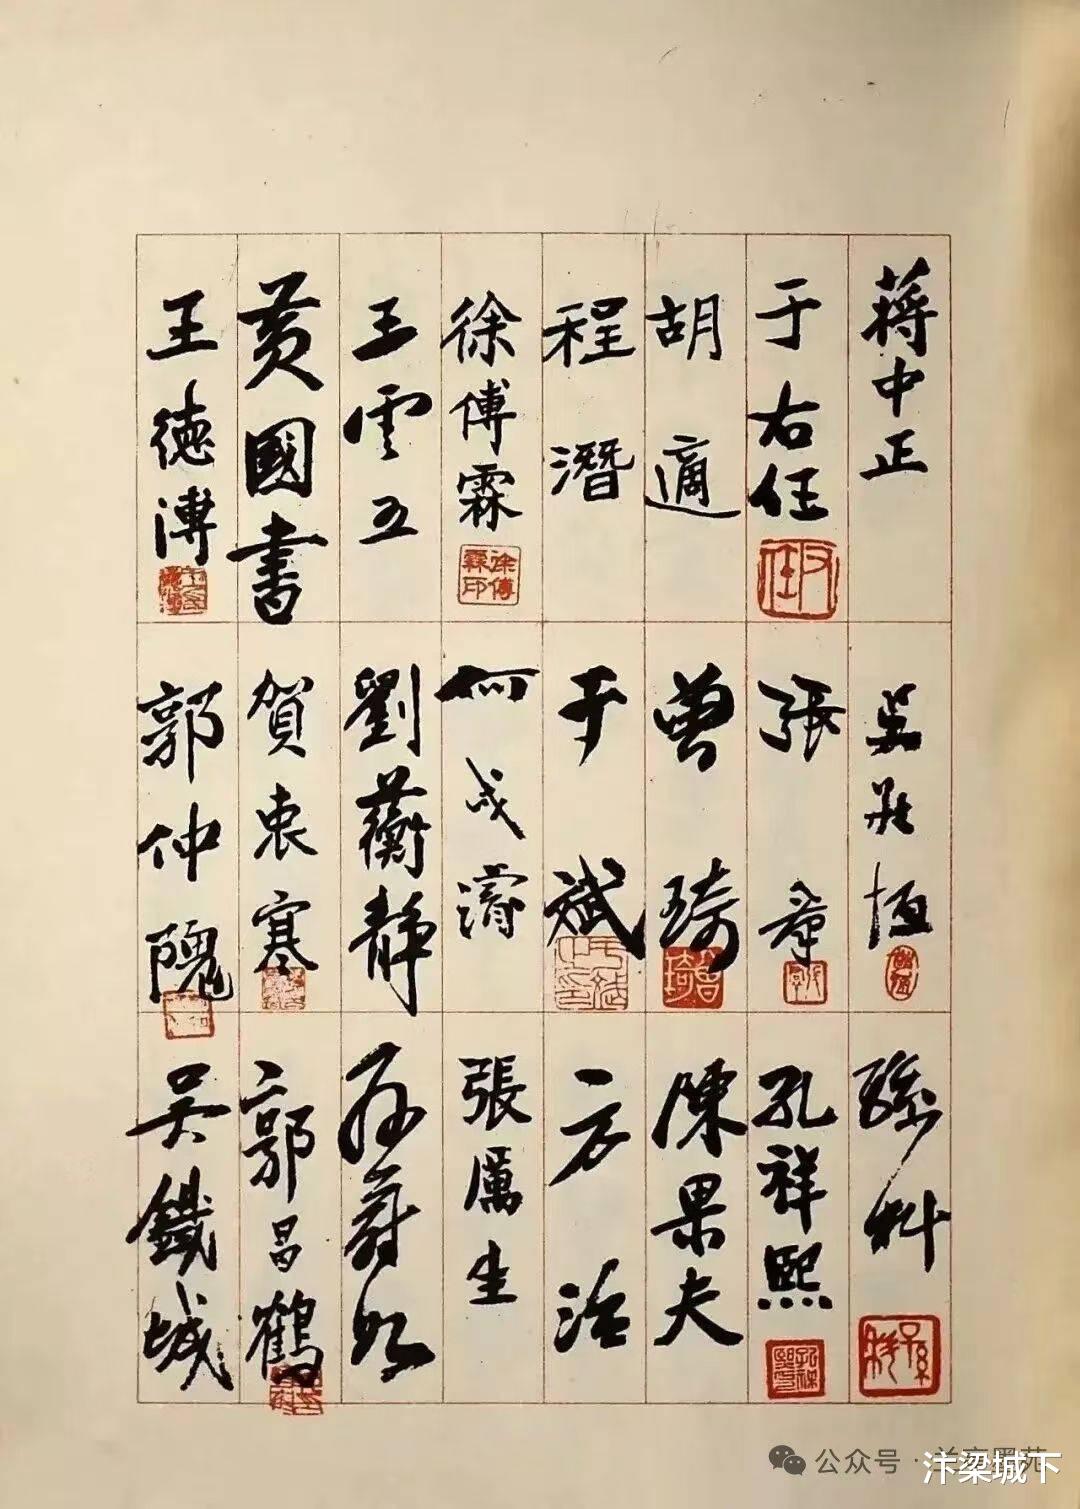 蔣中正
于右任
右任
胡適
程潛
徐傅霖
徐傅霖印
王雲五
黃國書
王德溥
吳敬恆
張羣
曾琦
曾琦
于斌
何成濬
劉蘅靜
賀衷寒
郭仲隗
孫科
孫科
孔祥熙
陳果夫
方治
張厲生
孫蔚如
郭昌鶴
吳鐵城
公众号 ·
汴梁城下